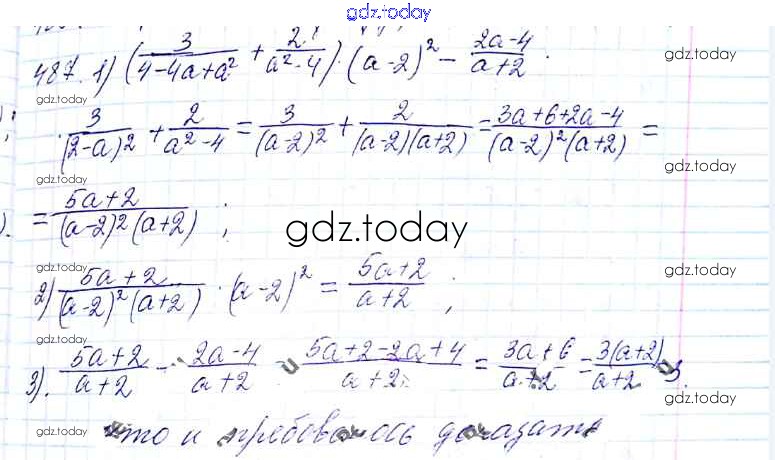 gdz.today
487. 1) (3/(4-4a+a²) + 2/(a²-4)) · (a-2)² - (2a-4)/(a+2).
gdz.today
3/(2-a)² + 2/(a²-4) = 3/(a-2)² + 2/((a-2)(a+2)) = (3a+6+2a-4)/((a-2)²(a+2)) =
gdz.today
gdz.today
gdz.today
= (5a+2)/((a-2)²(a+2)) ;
gdz.today
gdz.today
gdz.today
2) (5a+2)/((a-2)²(a+2)) · (a-2)² = (5a+2)/(a+2) ;
gdz.today
gdz.today
3). (5a+2)/(a+2) - (2a-4)/(a+2) = (5a+2-2a+4)/(a+2) = (3a+6)/(a+2) = 3(a+2)/(a+2) = 3.
gdz.today
что и требовалось доказать
gdz.today